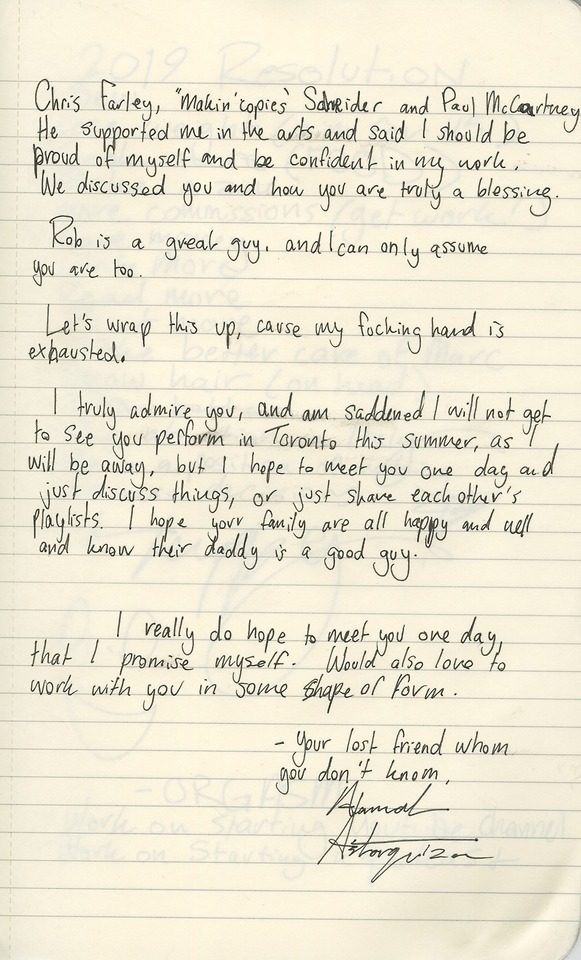 Chris Farley, "Makin' copies" Schneider and Paul McCartney
He supported me in the arts and said I should be
proud of myself and be confident in my work.
We discussed you and how you are truly a blessing.
Rob is a great guy, and I can only assume
you are too.
Let's wrap this up, cause my focking hand is
exhausted.
I truly admire you, and am saddened I will not get
to see you perform in Toronto this summer, as I
will be away, but I hope to meet you one day and
just discuss things, or just share each other's
playlists. I hope your family are all happy and well
and know their daddy is a good guy.
I really do hope to meet you one day,
that I promise myself. Would also love to
work with you in some shape of form.
- Your lost friend whom
you don't know,
2019 Resolution